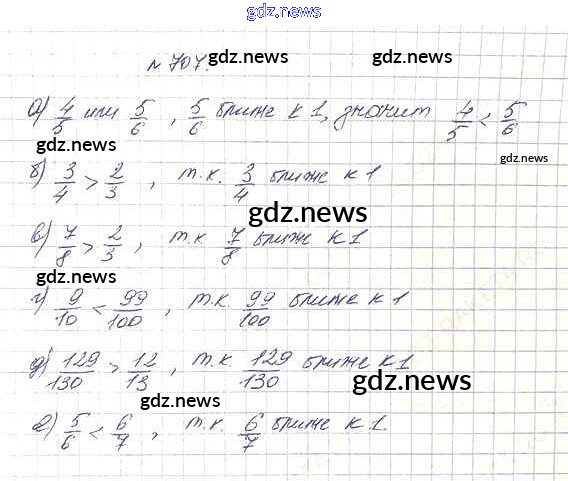 gdz.news
№ 707. gdz.news gdz.news
а) 4/5 или 5/6 , 5/6 ближе к 1, значит 4/5 < 5/6
gdz.news gdz.news
б) 3/4 > 2/3 , т.к. 3/4 ближе к 1
gdz.news
в) 7/8 > 2/3 , т.к 7/8 ближе к 1
gdz.news
г) 9/10 < 99/100 , т.к. 99/100 ближе к 1
gdz.news
д) 129/130 > 12/13 , т.к. 129/130 ближе к 1
gdz.news gdz.news
е) 5/6 < 6/7 , т.к. 6/7 ближе к 1.
gdz.news